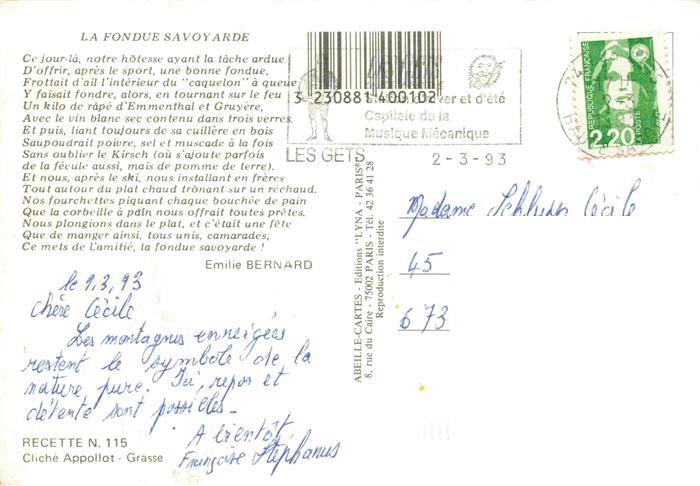 LA FONDUE SAVOYARDE
Ce jour-là, notre hôtesse ayant la tâche ardue
D'offrir, après le sport, une bonne fondue,
Frottait d'ail l'intérieur du "caquelon" à queue
Y faisait fondre, alors, en tournant sur le feu
Un kilo de râpé d'Emmenthal et Gruyère,
Avec le vin blanc sec contenu dans trois verres.
Et puis, liant toujours de sa cuillère en bois
Saupoudrait poivre, sel et muscade à la fois
Sans oublier le Kirsch (où s'ajoute parfois
de la fécule aussi, mais de pomme de terre).
Et nous, après le ski, nous installant en frères
Tout autour du plat chaud trônant sur un réchaud.
Nos fourchettes piquant chaque bouchée de pain
Que la corbeille à pain nous offrait toutes prêtes.
Nous plongions dans le plat, et c'était une fête
Que de manger ainsi, tous unis, camarades,
Ce mets de l'amitié, la fondue savoyarde !
Emilie BERNARD
le 2,3,93
Chère Cécile
Les montagnes enneigées
restent le symbole de la
nature pure. Ici, repos et
détente sont possibles_
A bientôt
Françoise Stéphanus
RECETTE N. 115
Cliché Appollot - Grasse
3 230881 400102
ver et d'été
Capitale de la
Musique Mécanique
LES GETS
2-3-93
ABEILLE-CARTES - Editions "LYNA - PARIS"
8, rue du Caire - 75002 PARIS - Tél. 42 36 41 28
Reproduction interdite
REPUBLIQUE FRANÇAISE
LA POSTE
2,20
Madame Cécile
45
673